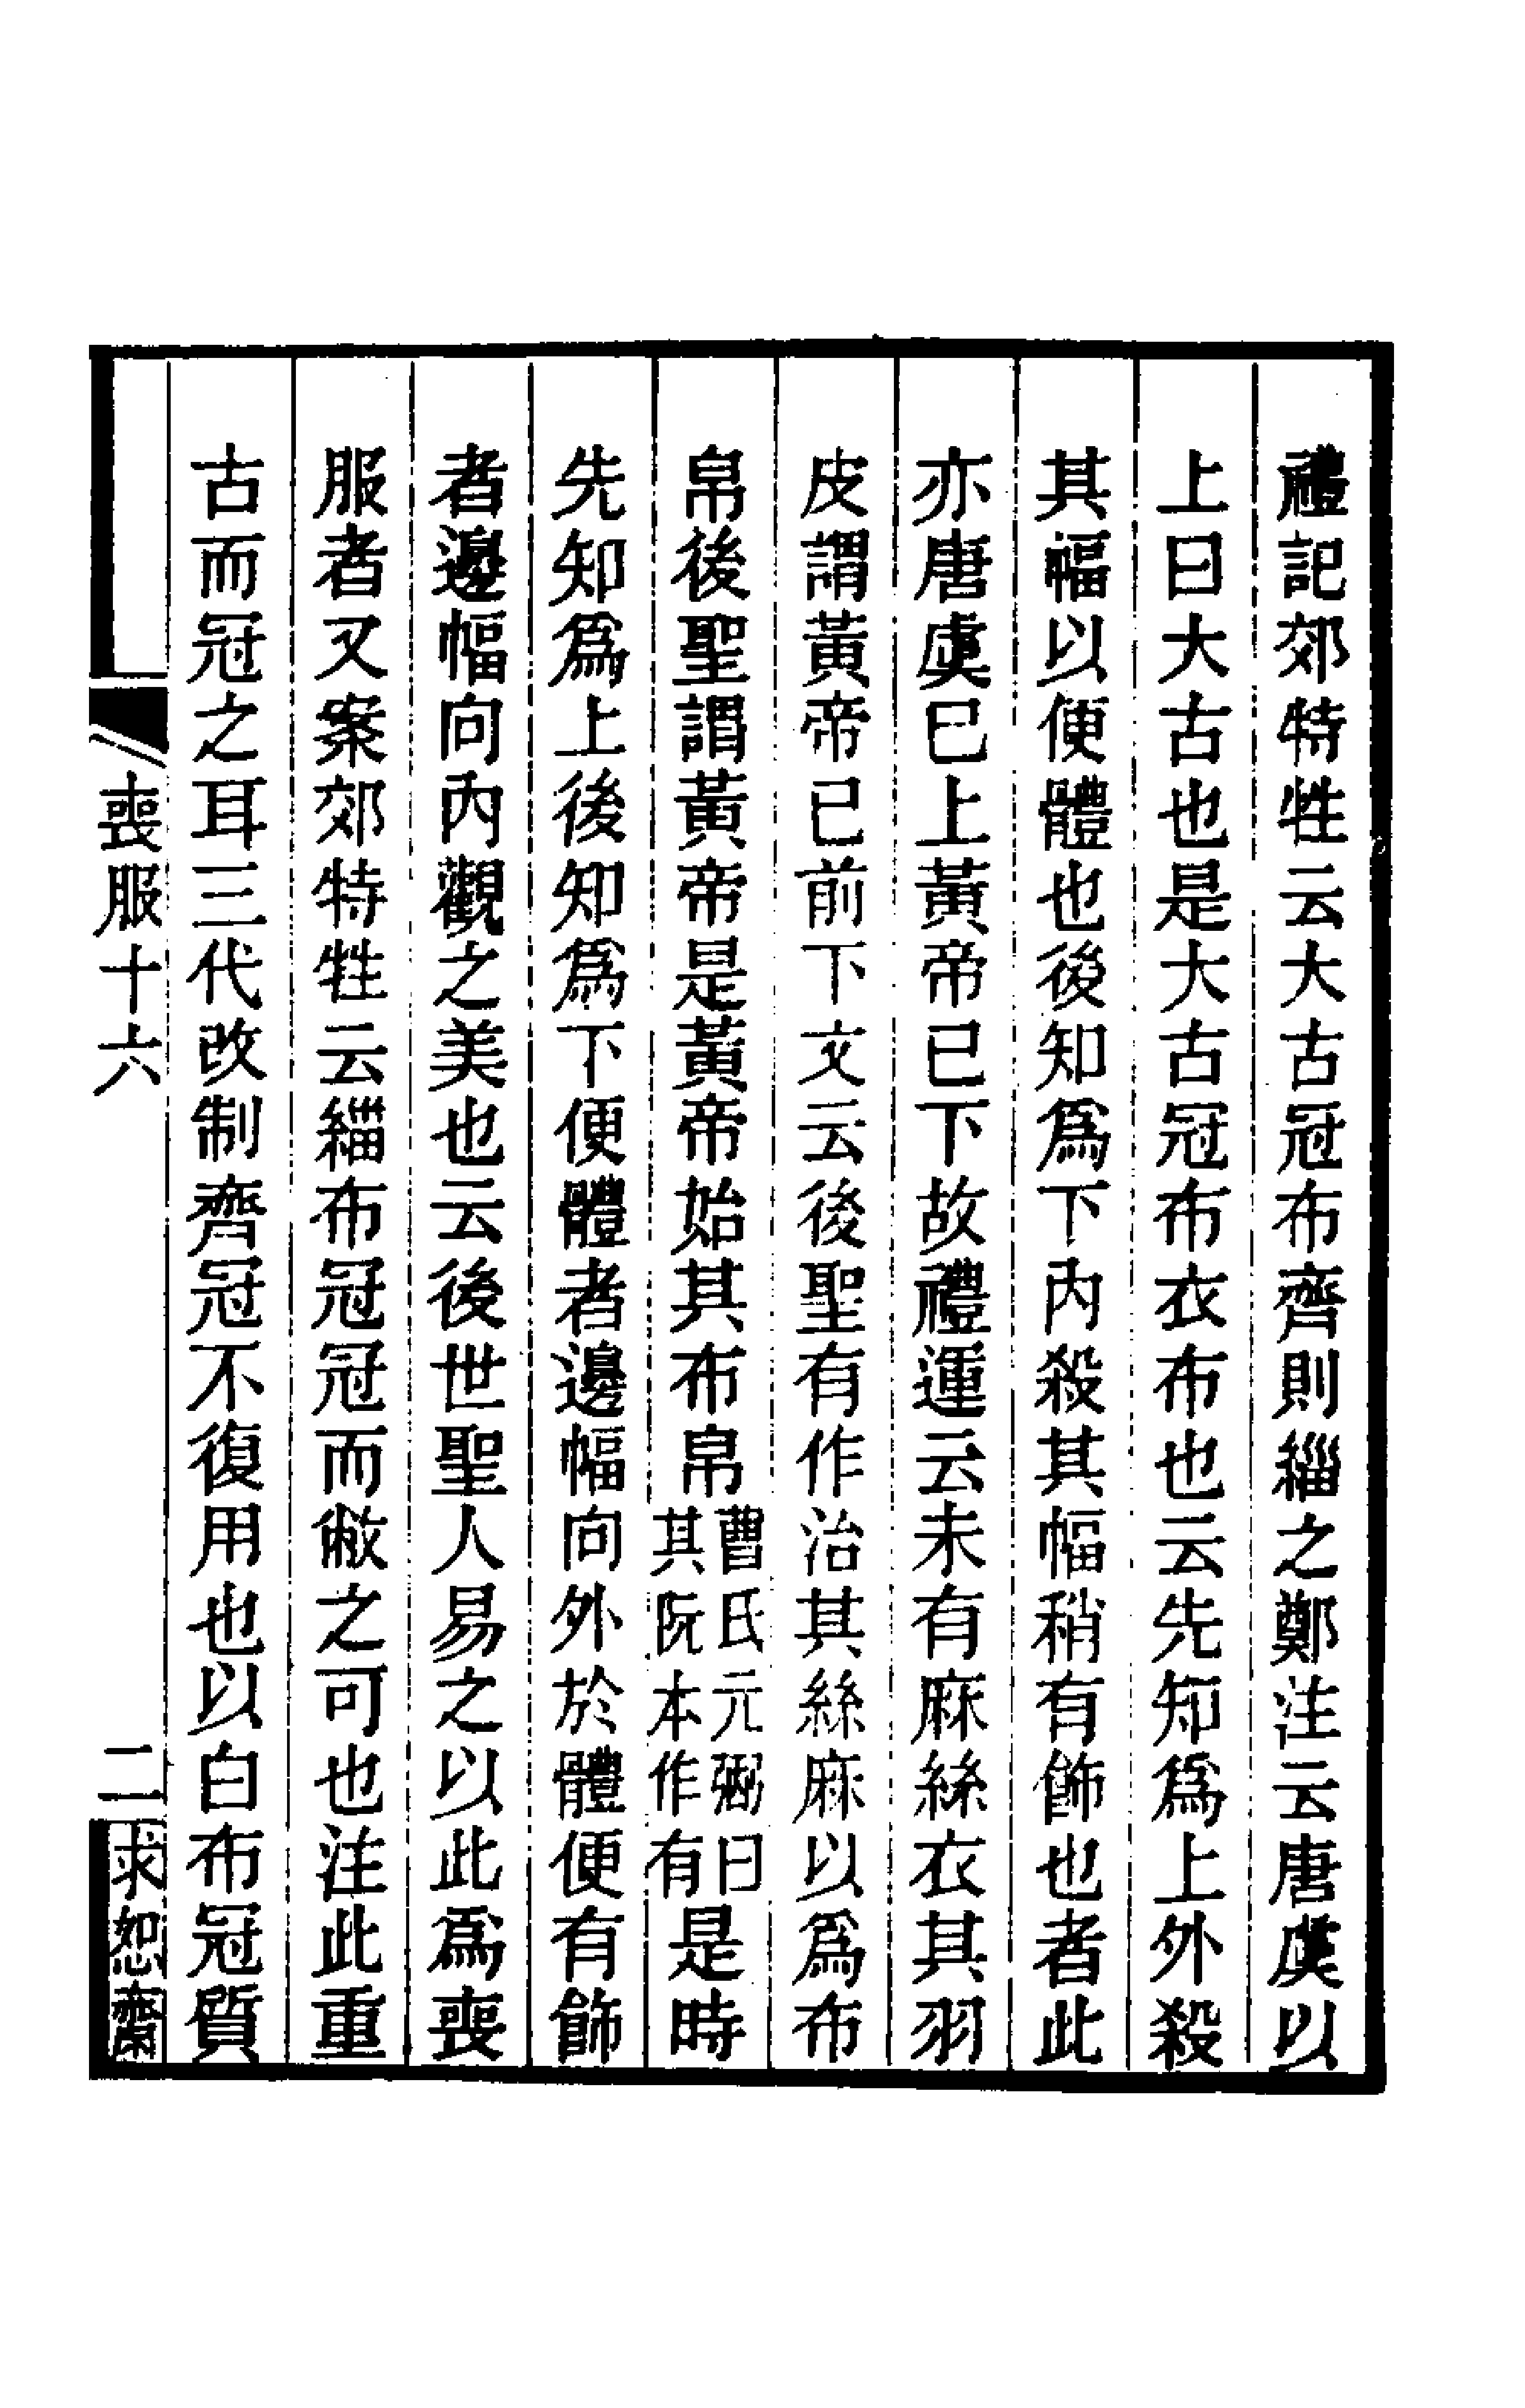 禮記郊特牲云大古冠布齊則緇之鄭注云唐虞以
上曰大古也是大古冠布衣布也云先知爲上外殺
其幅以便體也後知爲下內殺其幅稍有飾也者此
亦唐虞已上黃帝已下故禮運云未有麻絲衣其羽
皮謂黃帝已前下文云後聖有作治其絲麻以爲布
帛後聖謂黃帝是黃帝始其布帛曹氏元弼曰其阮本作有是時
先知爲上後知爲下便體者邊幅向外於體便有飾
者邊幅向內觀之美也云後世聖人易之以此爲喪
服者又案郊特牲云緇布冠冠而敝之可也注此重
古而冠之耳三代改制齊冠不復用也以白布冠質
喪服十六
二
求恕齋